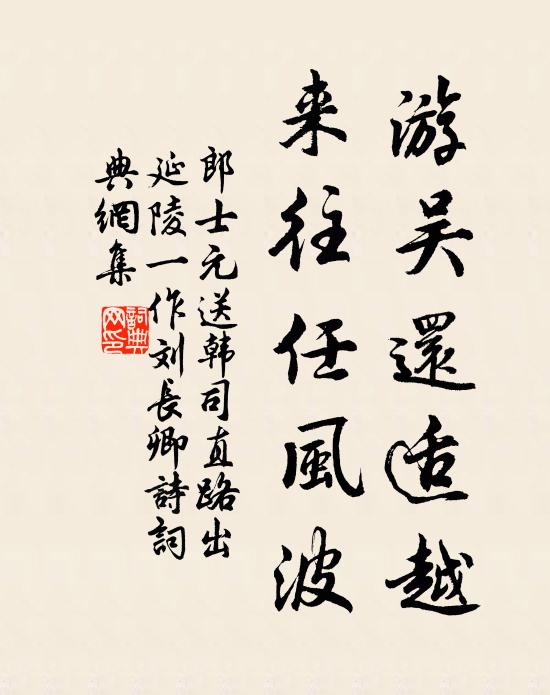 游吴還适越
来往任風波
郎士元送韩司直路出
延陵一作刘長卿詩詞
典網集
詞典
网印